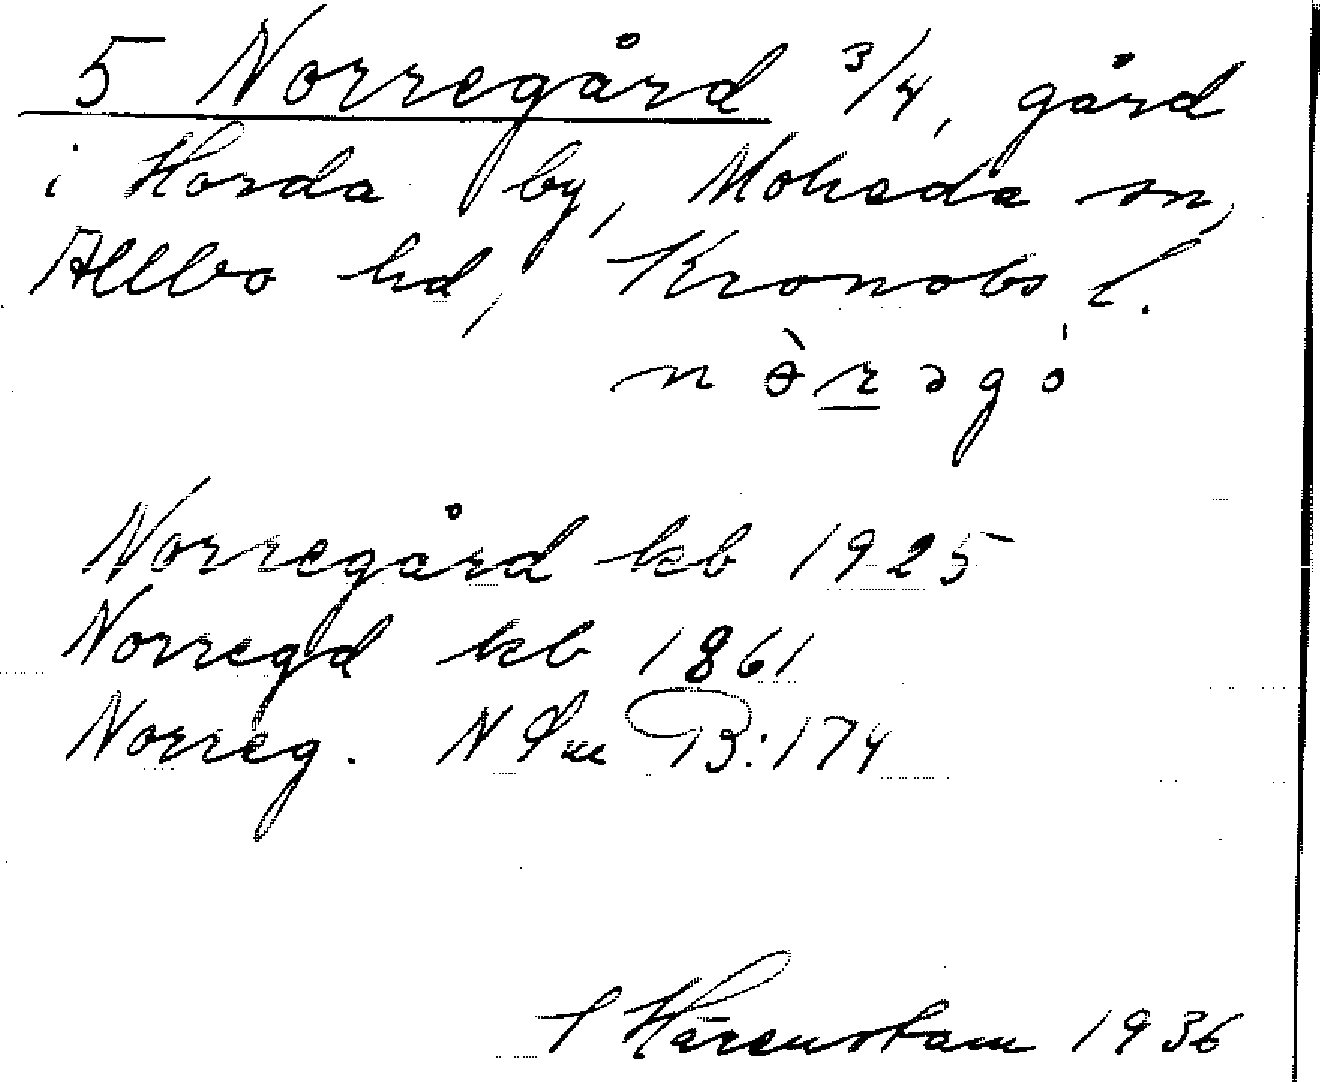 5 Norregård 3/4, gård
i Horda by, Moheda sn,
Allbo hd, Kronobs l.
Norregård kb 1925
Norregd kb 1861
Norreg. N B:174
Härenstam 1936